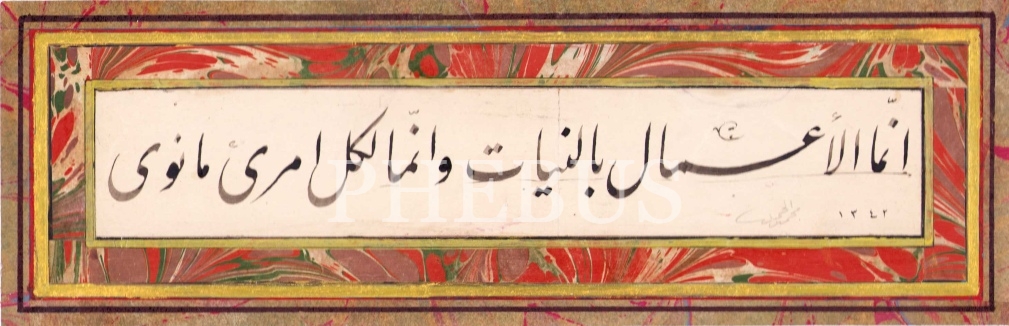 انّما الأعمال بالنيات وانّما لكل امرئ مانوى
١٣٤٢
PHEBUS